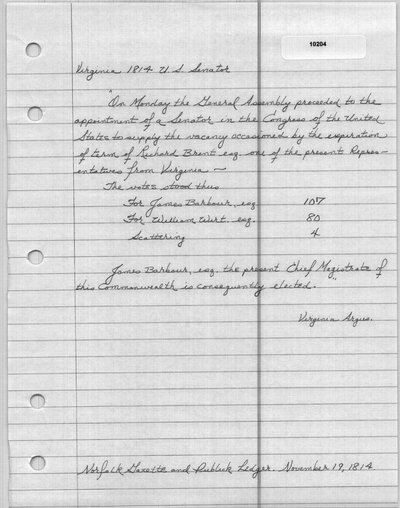 10204
Virginia 1814 U.S. Senator
"On Monday the General Assembly preceded to the
appointment of a Senator in the Congress of the United
States to supply the vacency occasioned by the expiration
of term of Richard Brent esq. one of the present Repres-
entatives from Virginia —
The votes stood thus
For James Barbour, esq. 107
For William Wirt. esq. 80
Scattering 4
James Barbour, esq. the present Chief Magistrate of
this Commonwealth is consequently elected."
Virginia Argus.
Norfolk Gazette and Publick Ledger. November 19, 1814